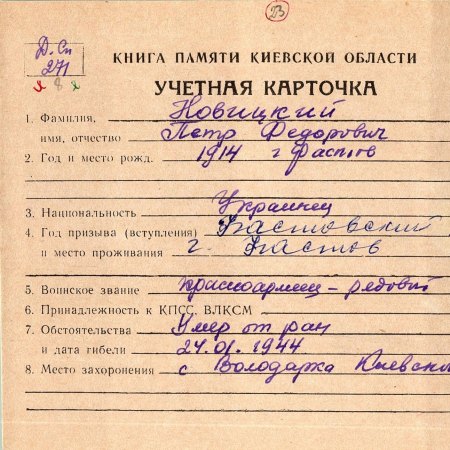 23
Д. Сп
271
я 8 я
КНИГА ПАМЯТИ КИЕВСКОЙ ОБЛАСТИ
УЧЕТНАЯ КАРТОЧКА
1. Фамилия, Новицкий
имя, отчество Петр Федорович
2. Год и место рожд. 1914 г Фастов
3. Национальность Украинец
4. Год призыва (вступления) Фастовский
и место проживания г. Фастов
5. Воинское звание красноармеец – рядовой
6. Принадлежность к КПСС, ВЛКСМ
7. Обстоятельства Умер от ран
и дата гибели 24.01.1944
8. Место захоронения с Володарка Киевско